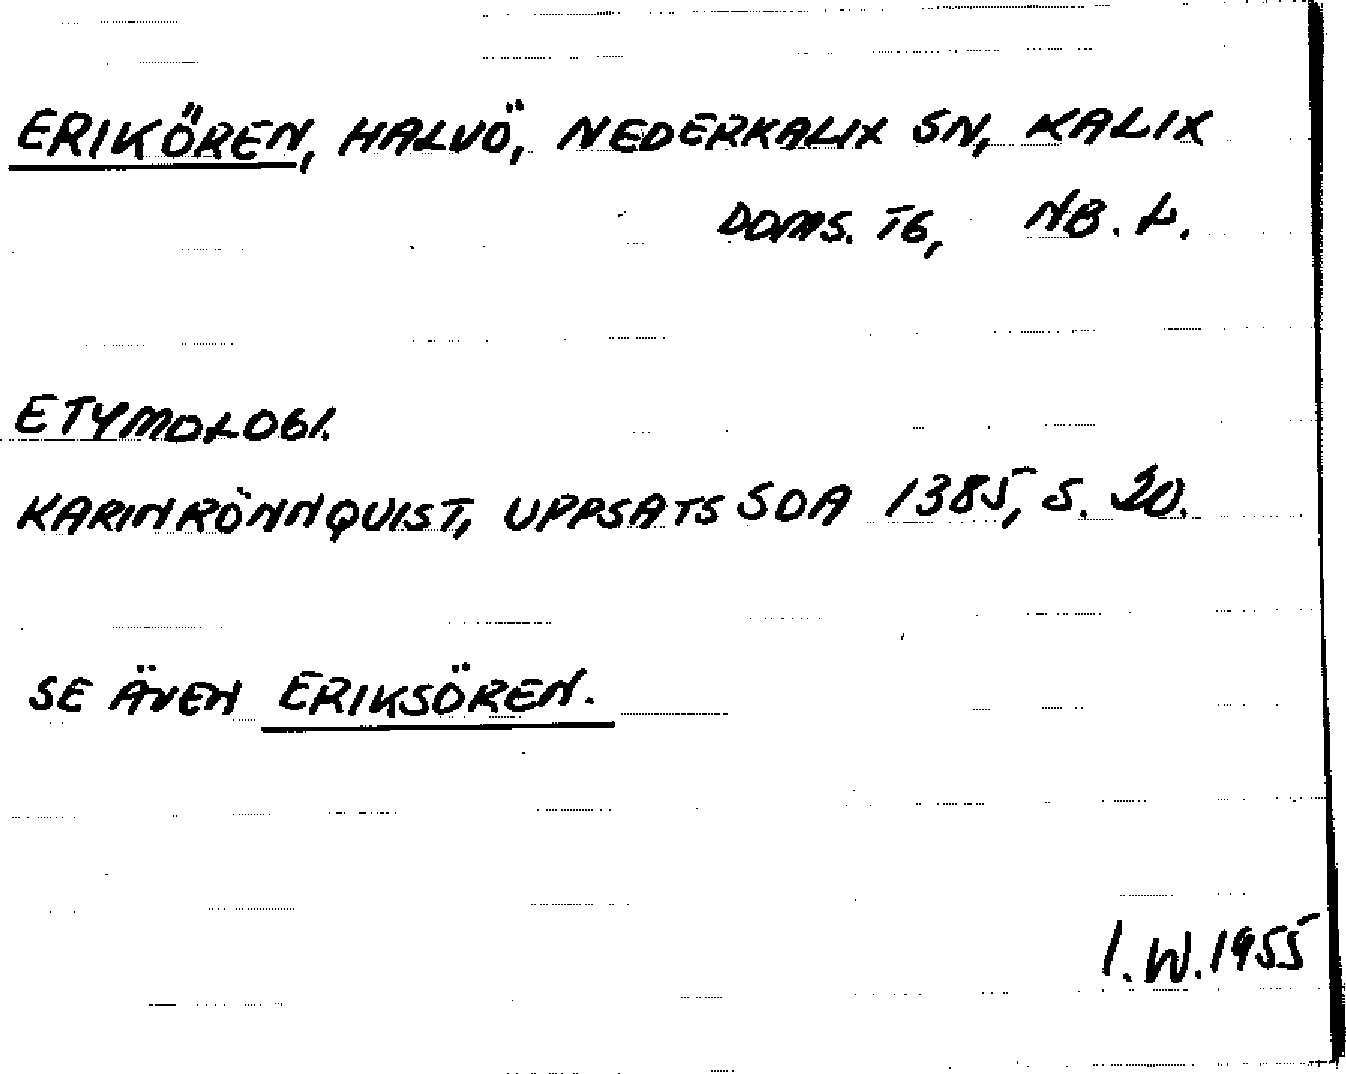 ERIKÖREN, HALVÖ, NEDERKALIX SN, KALIX
DOMS. TG, NB. L.
ETYMOLOGI.
KARIN RÖNNQUIST, UPPSATS SOA 1385, S. 20.
SE ÄVEN ERIKSÖREN.
I. W. 1955